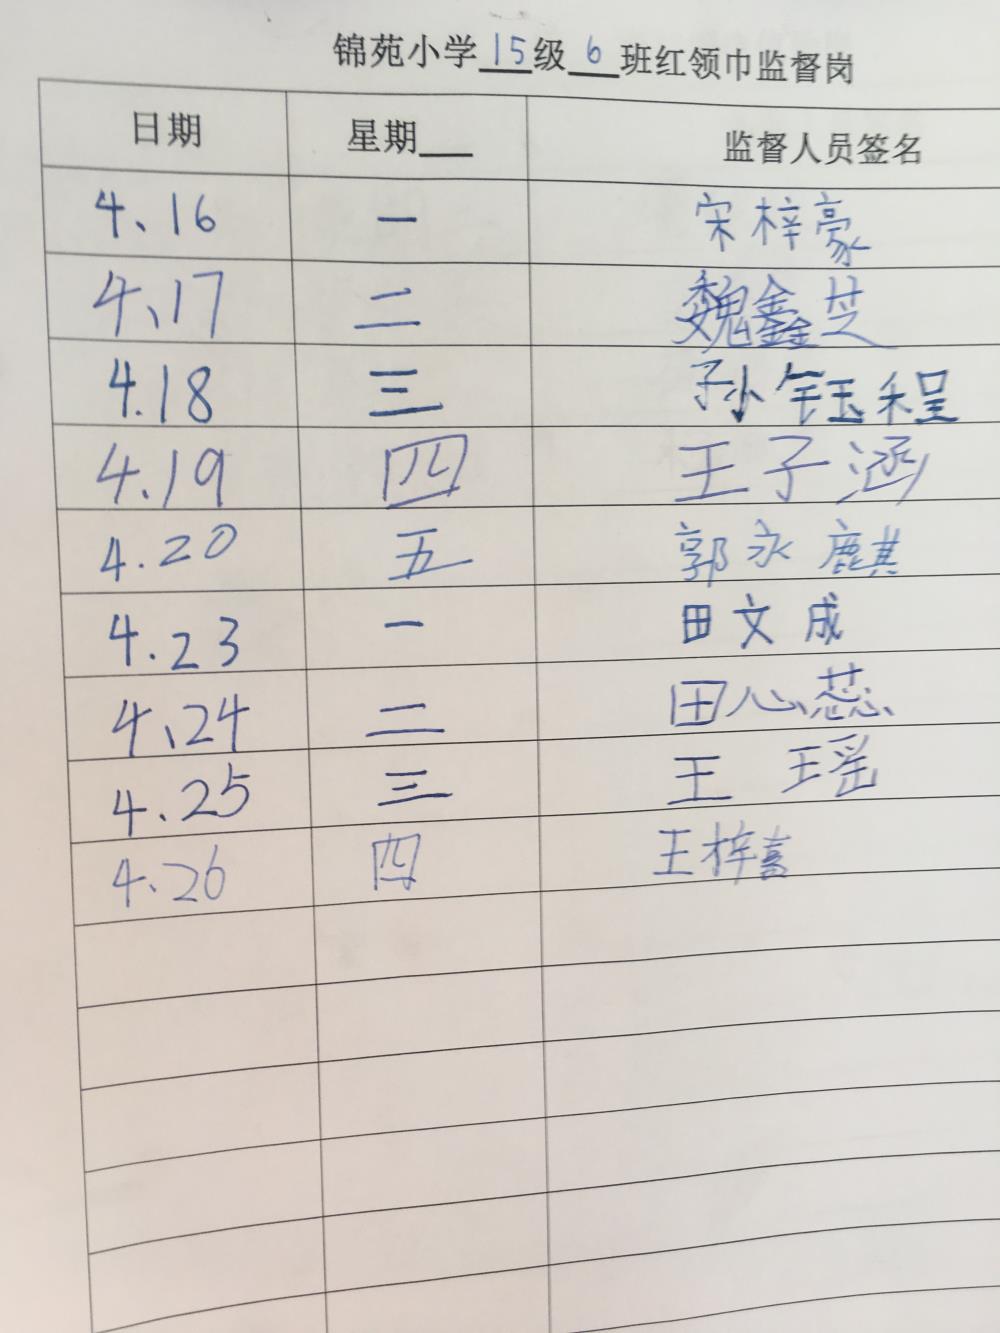 锦苑小学15级6班红领巾监督岗
日期 星期 监督人员签名
4、16 一 宋梓豪
4、17 二 魏鑫芝
4.18 三 孙钰程
4.19 四 王子涵
4.20 五 郭永麒
4.23 一 田文成
4、24 二 田心蕊
4.25 三 王瑶
4.26 四 王梓